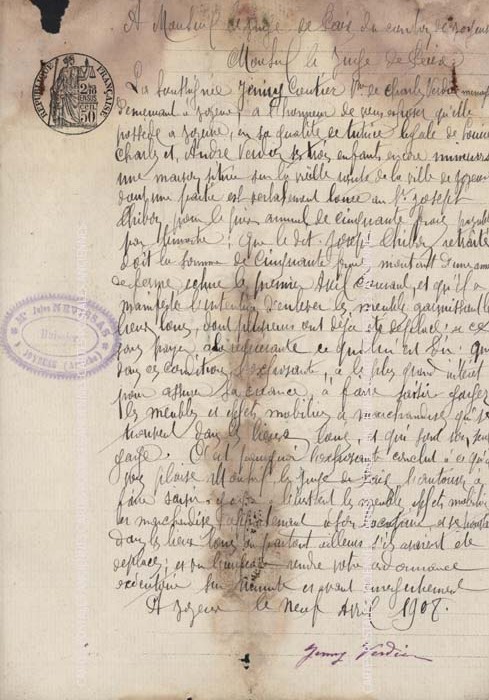 A Monsieur le Juge de Paix du canton de Joyeuse
Monsieur le Juge de Paix
RÉPUBLIQUE FRANÇAISE
2/10 EN SUS
50 CEN
La soussignée Jenny Coutier Vve de Charles Verdier
demeurant à Joyeuse, a l'honneur de vous exposer qu'elle
possède à Joyeuse, en sa qualité de tutrice légale de
Charles et André Verdier ses trois enfants encore mineurs
une maison située sur la vieille route de la ville de Joyeuse
dont une partie est verbalement louée au Sr Joseph
Chibon pour le prix annuel de cinquante francs payable
par trimestre; Que le dit Joseph Chibon
doit la somme de cinquante francs montant d'une année
de ferme échue le premier Avril courant, et qu'il a
manifesté l'intention d'enlever les meubles garnissant les
lieux loués, dont plusieurs ont déjà été
sans payer à la requérante ce qui lui est dû; Que
dans ces conditions l'exposante, a le plus grand intérêt
pour assurer sa créance, à faire saisir gager
les meubles et effets mobiliers et marchandises qui se
trouvent dans les lieux loués, et qui sont
gage. C'est pourquoi l'exposante conclut à ce qu'il
vous plaise Monsieur le Juge de Paix l'autoriser à
faire saisir gager les meubles effets mobiliers
et marchandises appartenant à
dans les lieux loués ou partout ailleurs s'ils avaient été
déplacés; et rendre votre ordonnance
exécutoire sur minute et avant enregistrement
A Joyeuse le neuf Avril 1907.
Jenny Verdier
Me Jules
Huissier
À JOYEUSE (Ardèche)